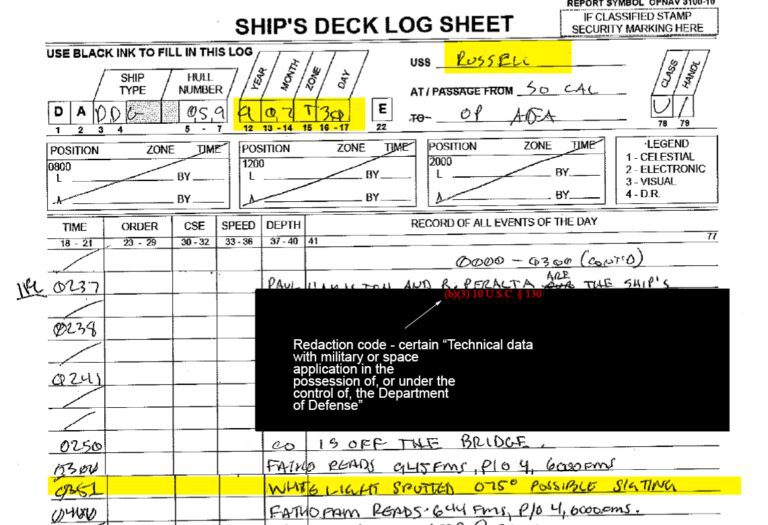 REPORT SYMBOL OPNAV 3100-10
SHIP'S DECK LOG SHEET
IF CLASSIFIED STAMP
SECURITY MARKING HERE
USE BLACK INK TO FILL IN THIS LOG
USS RUSSELL
SHIP TYPE
HULL NUMBER
YEAR
MONTH
ZONE
DAY
CLASS
HANDL
AT / PASSAGE FROM SO CAL
D A DDG 059 9 07 T 30 E
TO OP AOA
U
1 2 3 4 5 - 7 12 13 - 14 15 16 - 17 22
78 79
POSITION ZONE TIME
0800
L BY
BY
POSITION ZONE TIME
1200
L BY
BY
POSITION ZONE TIME
2000
L BY
BY
·LEGEND
1 - CELESTIAL
2 - ELECTRONIC
3 - VISUAL
4 - D.R.
TIME ORDER CSE SPEED DEPTH RECORD OF ALL EVENTS OF THE DAY
18 - 21 23 - 29 30 - 32 33 - 36 37 - 40 41 77
0000 - 0300 (CONT'D)
0237 PAUL HAMILTON AND R. PERALTA ARE THE SHIP'S
(b)(3) 10 U.S.C. § 130
0238
Redaction code - certain “Technical data
with military or space
application in the
possession of, or under the
control of, the Department
of Defense”
0241
0250 CO IS OFF THE BRIDGE.
0300 FATHO READS 945 FMS, P/O 4, 6000 FMS
0351 WHITE LIGHT SPOTTED 075° POSSIBLE SIGTING
0400 FATHOFAM READS 644 FMS, P/O 4, 6000 FMS.